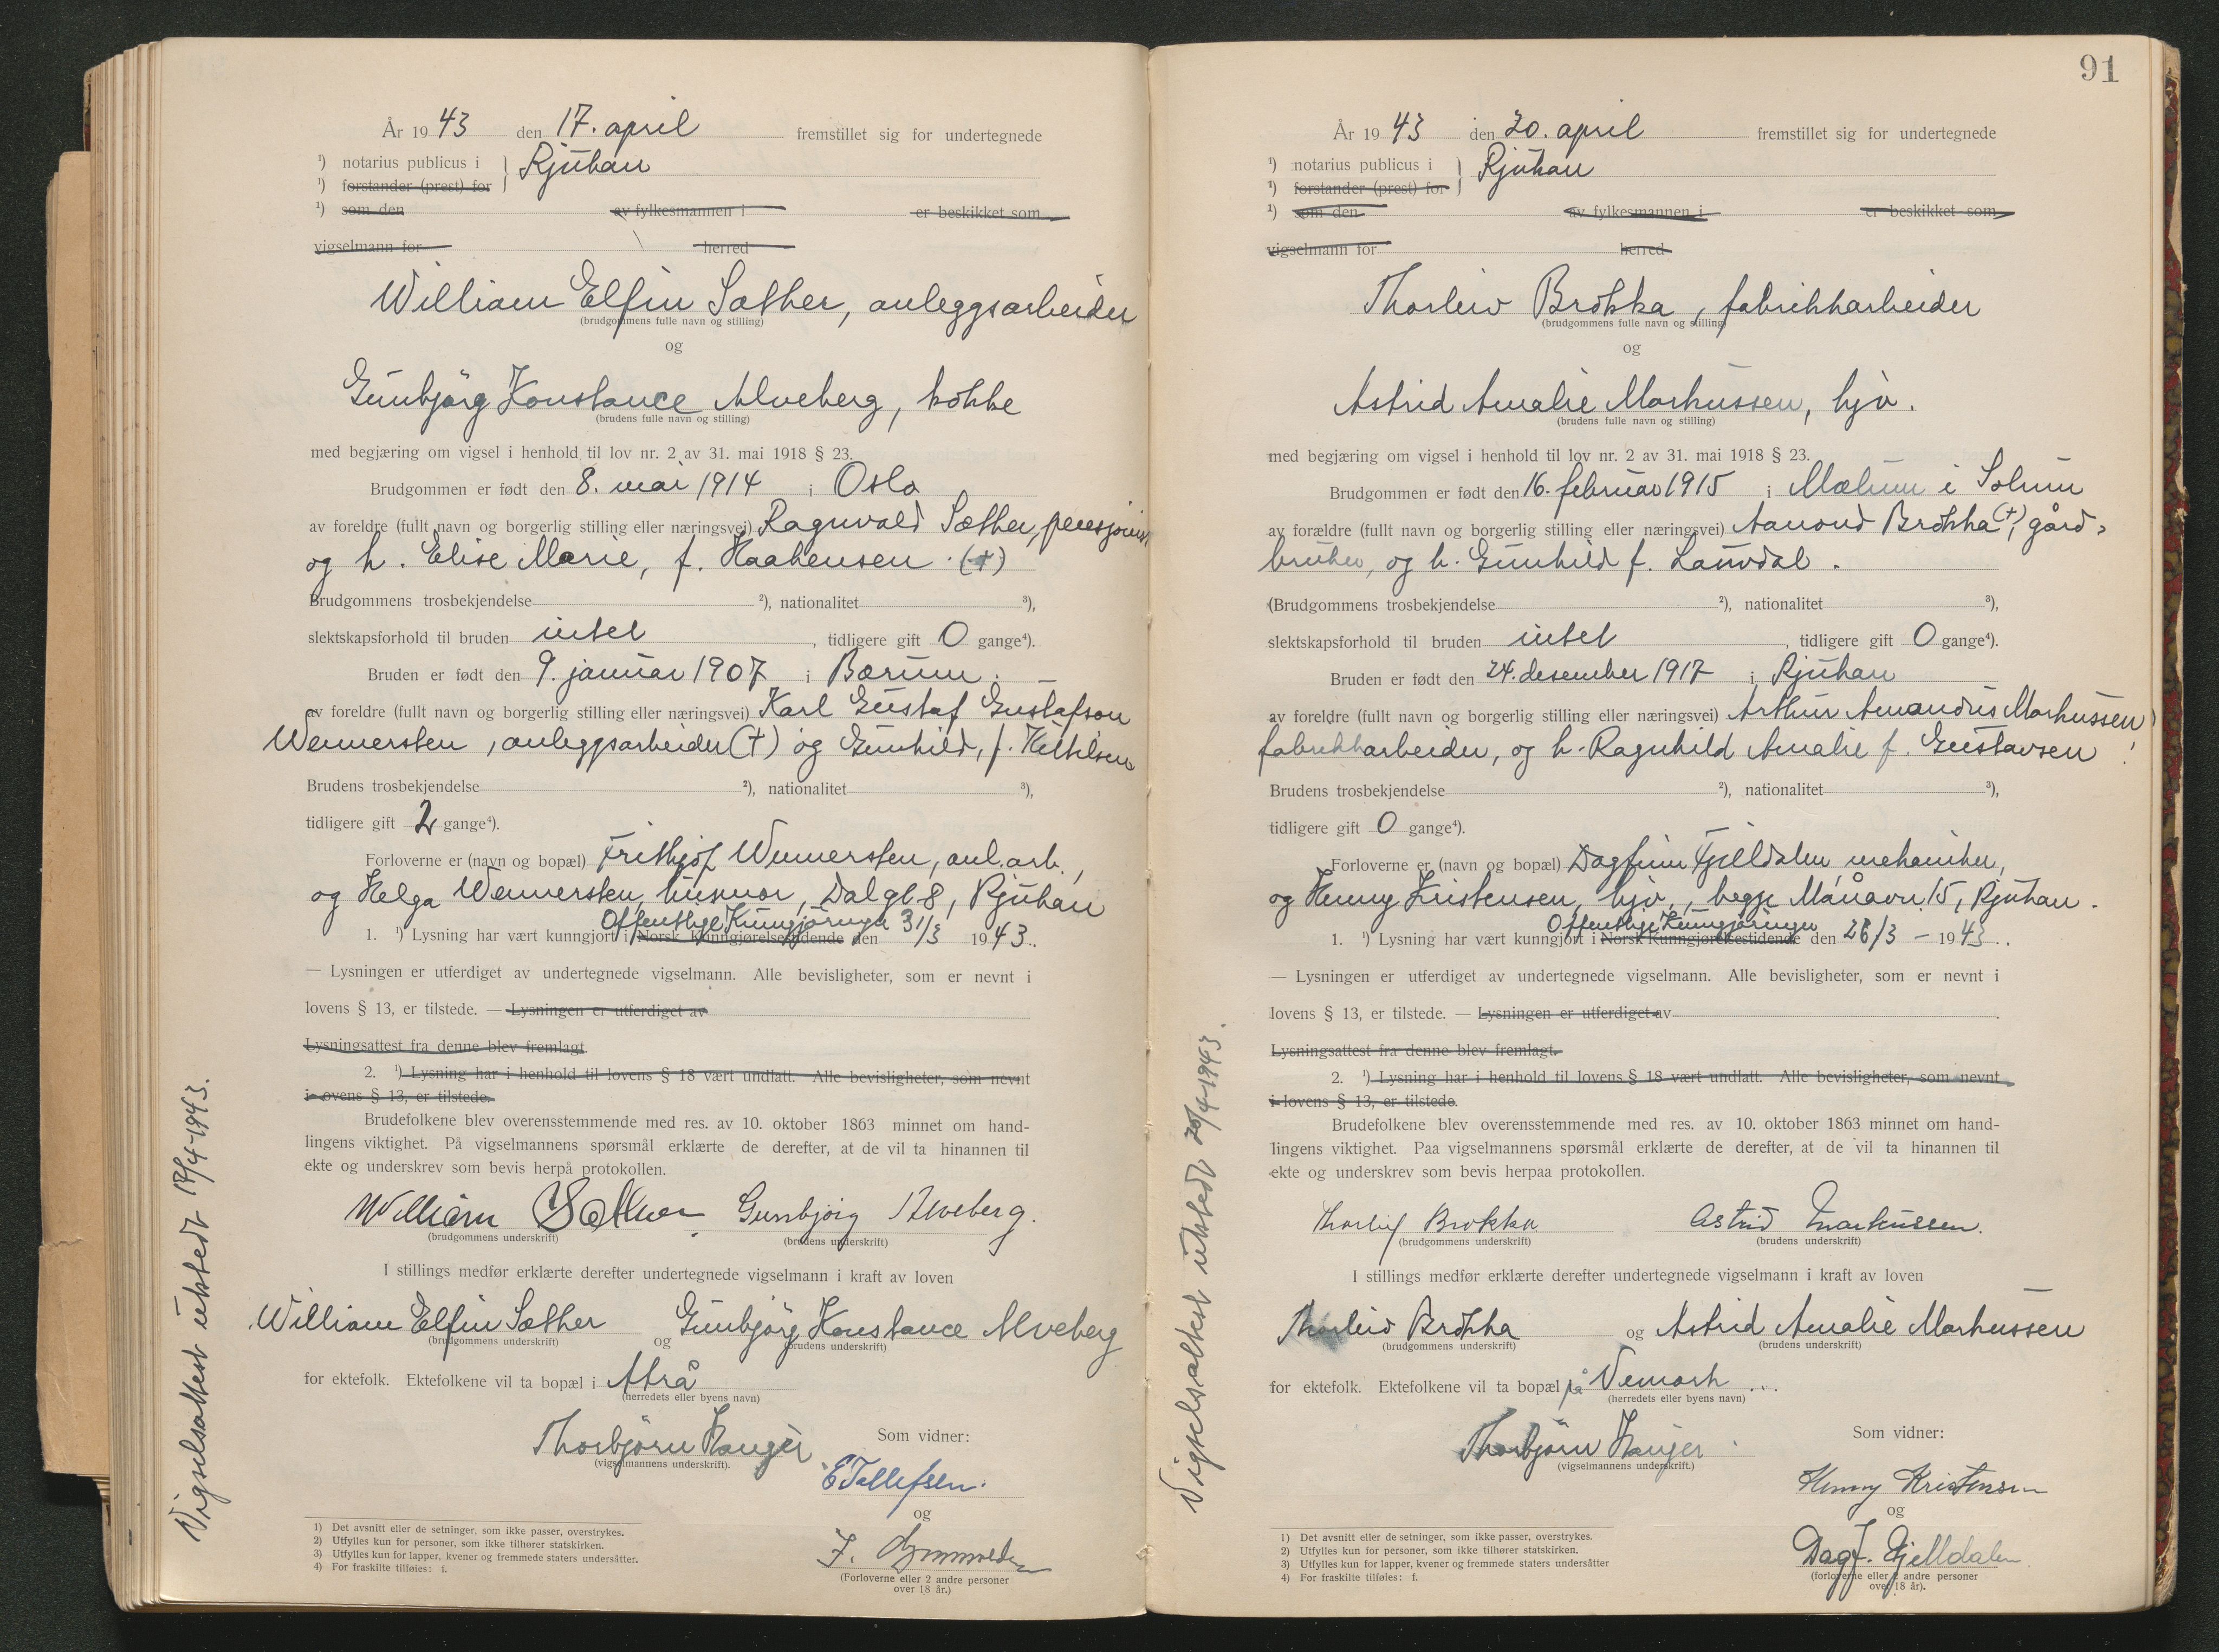 År 1943 den 17. april fremstillet sig for undertegnede
¹) notarius publicus i } Rjukan
¹) forstander (prest) for
¹) som den av fylkesmannen i er beskikket som
vigselmann for herred
William Elfin Sæther, anleggsarbeider
(brudgommens fulle navn og stilling)
og
Gunbjörg Konstance Alveberg, kokke
(brudens fulle navn og stilling)
med begjæring om vigsel i henhold til lov nr. 2 av 31. mai 1918 § 23.
Brudgommen er født den 8. mai 1914 i Oslo
av foreldre (fullt navn og borgerlig stilling eller næringsvei) Ragnvald Sæther, pensjonist
og h. Elise Marie, f. Haakensen. (+)
Brudgommens trosbekjendelse ²), nationalitet ³),
slektskapsforhold til bruden intet, tidligere gift 0 gange⁴).
Bruden er født den 9. januar 1907 i Bærum.
av foreldre (fullt navn og borgerlig stilling eller næringsvei) Karl Gustaf Gustafson
Wennersten, anleggsarbeider (+) og Gunhild, f. Kittilsen
Brudens trosbekjendelse ²), nationalitet ³),
tidligere gift 2 gange⁴).
Forloverne er (navn og bopæl) Frithjof Wennersten, anl.arb.,
og Helga Wennersten, husmor, Dal gt 8, Rjukan
Offentlige Kungjøringer
1. ¹) Lysning har vært kunngjort i Norsk Kunngjørelsestidende den 31/3 1943.
— Lysningen er utferdiget av undertegnede vigselmann. Alle bevisligheter, som er nevnt i
lovens § 13, er tilstede. — Lysningen er utferdiget av
Lysningsattest fra denne blev fremlagt.
2. ¹) Lysning har i henhold til lovens § 18 vært undlatt. Alle bevisligheter, som nevnt
i lovens § 13, er tilstede.
Brudefolkene blev overensstemmende med res. av 10. oktober 1863 minnet om hand-
lingens viktighet. På vigselmannens spørsmål erklærte de derefter, at de vil ta hinannen til
ekte og underskrev som bevis herpå protokollen.
William Sæther Gunbjörg Alveberg.
(brudgommens underskrift) (brudens underskrift)
I stillings medfør erklærte derefter undertegnede vigselmann i kraft av loven
William Elfin Sæther og Gunbjörg Konstance Alveberg
(brudgommens underskrift) (brudens underskrift)
for ektefolk. Ektefolkene vil ta bopæl i Atrå
(herredets eller byens navn)
Thorbjörn Hanger
(vigselmannens underskrift).
Som vidner:
E Tollefsen.
og
(Forloverne eller 2 andre personer
over 18 år.)
1) Det avsnitt eller de setninger, som ikke passer, overstrykes.
2) Utfylles kun for personer, som ikke tilhører statskirken.
3) Utfylles kun for lapper, kvener og fremmede staters undersåtter.
4) For fraskilte tilføies: f.
Vigselsattest utstedt 17/4-1943.
91
År 1943 den 20. april fremstillet sig for undertegnede
¹) notarius publicus i } Rjukan
¹) forstander (prest) for
¹) som den av fylkesmannen i er beskikket som
vigselmann for herred
Thorleiv Brokka, fabrikkarbeider
(brudgommens fulle navn og stilling)
og
Astrid Amalie Markussen, hjv.
(brudens fulle navn og stilling)
med begjæring om vigsel i henhold til lov nr. 2 av 31. mai 1918 § 23.
Brudgommen er født den 16. februar 1915 i Mælum i Solum
av forældre (fullt navn og borgerlig stilling eller næringsvei) Aanond Brokka (+), gård-
bruker, og h. Gunhild f. Lauvdal.
(Brudgommens trosbekjendelse ²), nationalitet ³),
slektskapsforhold til bruden intet, tidligere gift 0 gange⁴).
Bruden er født den 24. desember 1917 i Rjukan
av foreldre (fullt navn og borgerlig stilling eller næringsvei) Arthur Amandus Markussen,
fabrikkarbeider, og h. Ragnhild Amalie f. Gustavsen
Brudens trosbekjendelse ²), nationalitet ³),
tidligere gift 0 gange⁴).
Forloverne er (navn og bopæl) Dagfinn Fjelldalen, mekaniker,
og Henny Kristensen, hjv., begge Månavn. 15, Rjukan.
Offentlige Kungjøringer
1. ¹) Lysning har vært kunngjort i Norsk Kunngjørelsestidende den 26/3 – 1943.
— Lysningen er utferdiget av undertegnede vigselmann. Alle bevisligheter, som er nevnt i
lovens § 13, er tilstede. — Lysningen er utferdiget av
Lysningsattest fra denne blev fremlagt.
2. ¹) Lysning har i henhold til lovens § 18 vært undlatt. Alle bevisligheter, som nevnt
i lovens § 13, er tilstede.
Brudefolkene blev overensstemmende med res. av 10. oktober 1863 minnet om hand-
lingens viktighet. Paa vigselmannens spørsmål erklærte de derefter, at de vil ta hinannen til
ekte og underskrev som bevis herpaa protokollen.
Thorleif Brokka Astrid Markussen.
(brudgommens underskrift) (brudens underskrift)
I stillings medfør erklærte derefter undertegnede vigselmann i kraft av loven
Thorleiv Brokka og Astrid Amalie Markussen
(brudgommens underskrift) (brudens underskrift)
for ektefolk. Ektefolkene vil ta bopæl på Vemork
(herredets eller byens navn)
Thorbjörn Hanger
(vigselmannens underskrift.)
Som vidner:
Henny Kristensen
og
Dagf. Fjelldalen
(forloverne eller 2 andre personer
over 18 år).
1) Det avsnitt eller de setninger, som ikke passer, overstrykes.
2) Utfylles kun for personer, som ikke tilhører statskirken.
3) Utfylles kun for lapper, kvener og fremmede staters undersåtter
4) For fraskilte tilføies: f.
Vigselsattest utstedt 20/4-1943.